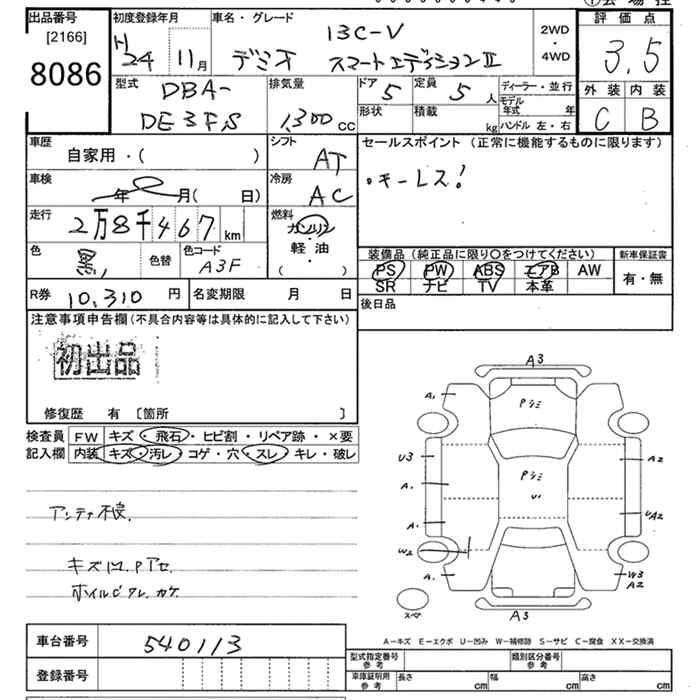 出品番号
[2166]
8086
初度登録年月
H24 11月
車名・グレード
13C-V
デミオ スマートエディションⅡ
2WD
・
4WD
評価点
3.5
外装 内装
C B
型式
DBA-
DE3FS
排気量
1,300 CC
ドア 5
定員 5 人
形状
積載 kg
ディーラー・並行
モデル年式 年
ハンドル 左・右
車歴
自家用・( )
シフト
AT
車検
年 月( 日)
冷房
AC
走行
2万8千467 km
燃料
ガソリン
軽油
・
( )
色
黒
色替
色コード
A3F
R券 10,310 円
名変期限 月 日
セールスポイント (正常に機能するものに限ります)
・キーレス!
装備品 (純正品に限り〇をつけてください)
PS PW ABS エアB AW
SR ナビ TV 本革
新車保証書
有・無
後日品
注意事項申告欄(不具合内容等は具体的に記入して下さい)
初出品
修復歴 有 〔箇所 〕
検査員
記入欄
FW キズ・飛石・ヒビ割・リペア跡・×要
内装 キズ・汚レ・コゲ・穴・スレ・キレ・破レ
アンテナ不良.
キズ凹.Pアセ
ホイルCタレ.カケ
A3
A1
Pシミ
U3
A2
A1
Pシミ
U1
A1
UA2
W2
A1
W3
A2
スペア
A3
A-キズ E-エクボ U-凹み W-補修跡 S-サビ C-腐食 XX-交換済
車台番号 540113
登録番号
型式指定番号
参考
類別区分番号
参考
車庫証明用
参考
長さ cm
幅 cm
高さ cm